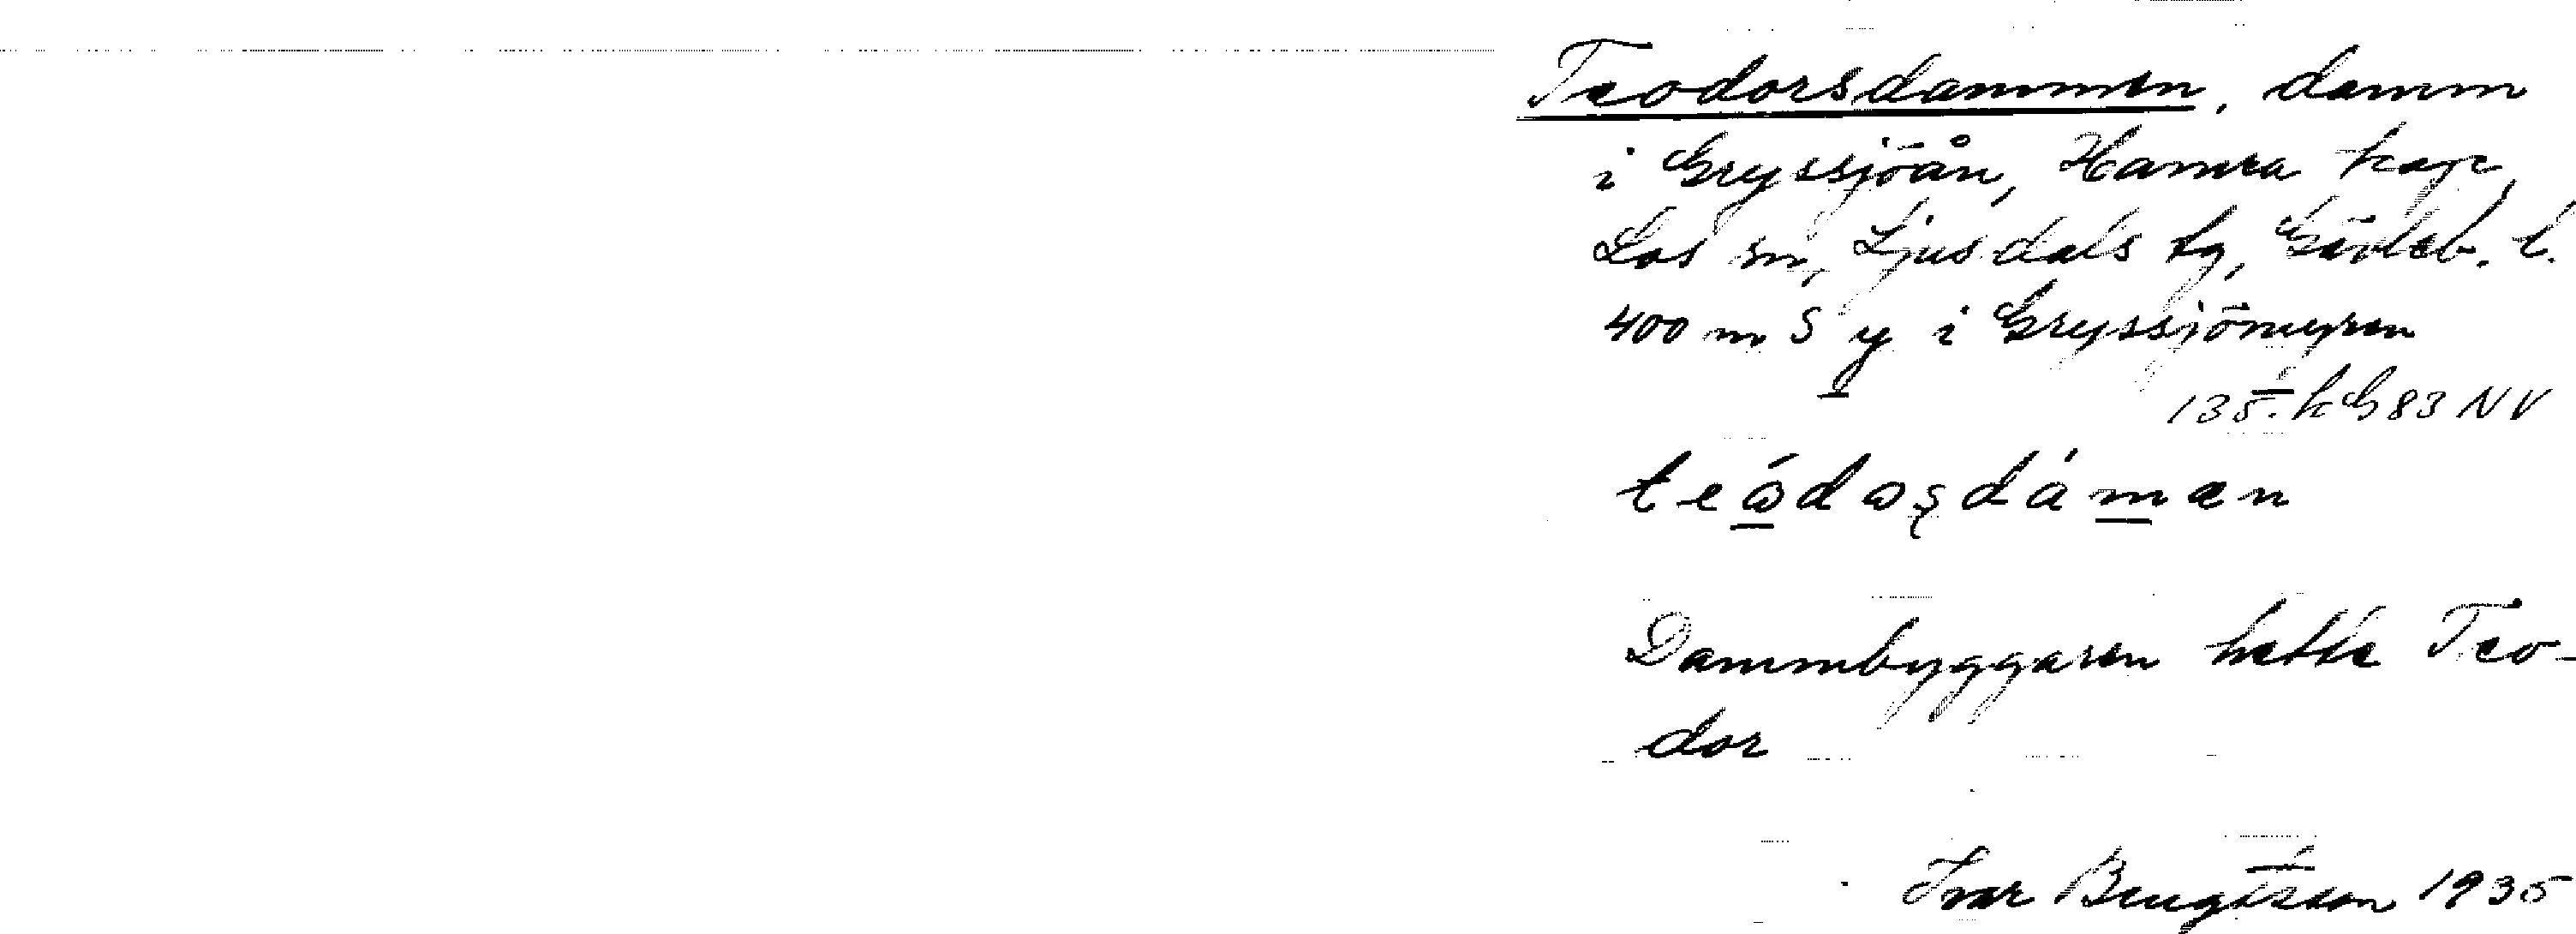 Teodorsdammen, damm
i Gryssjöån, Hamra kap,
Los sn, Ljusdals tg, Gävleb. l.
400 m S y i Gryssjömyren
135. kb 83 NV
Dammbyggaren hette Teo-
dor
Ivar Bengtsson 1935